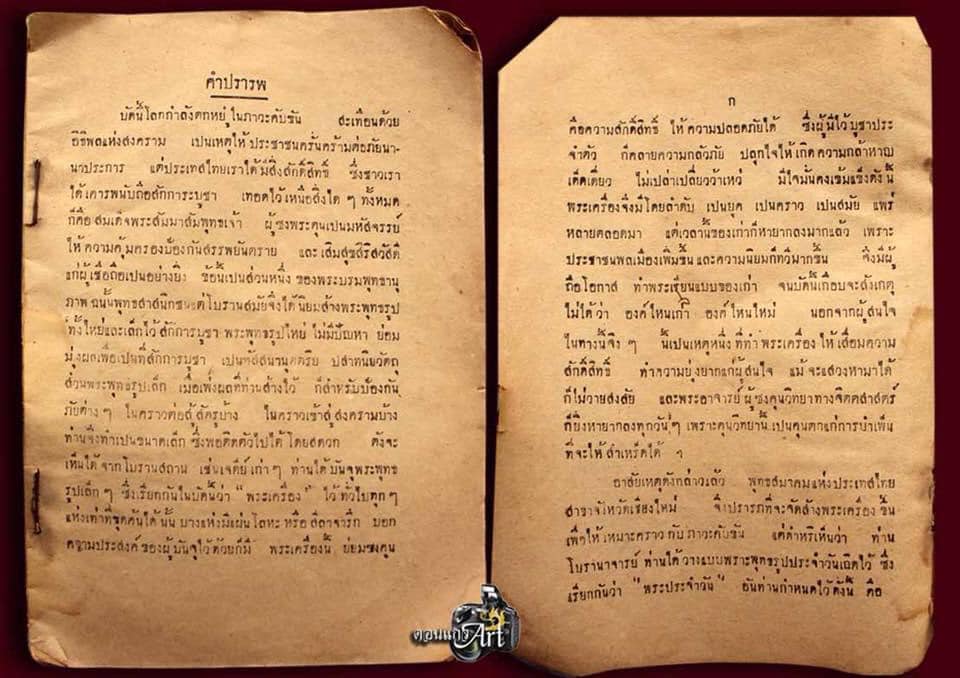 คำปรารพ
บัดนี้โลกกำลังตกหยู่ไนภาวะคับขัน สะเทือนด้วย
อิธิพลแห่งสงคราม เปนเหตุไห้ประชาชนครั่นคร้ามต่อภัยนา-
นาประการ แต่ประเทสไทยเราได้มีสิ่งสักดิ์สิทธิ์ ซึ่งชาวเรา
ได้เคารพนับถือสักการะบูชา เทอดไว้เหนือสิ่งใด ๆ ทั้งหมด
ก็คือ สมเด็จพระสัมมาสัมพุทธเจ้า ผู้ซงพระคุนเปนมหัสจรรย์
ไห้ความคุ้มครองป้องกันสรรพยันตราย และเสิมสุขสิริสวัสดิ
แก่ผู้เชื่อถือเปนอย่างยิ่ง ข้อนี้เปนส่วนหนึ่ง ของพระบรมพุทธานุ
ภาพ ฉนั้นพุทธสาสนิกชนแต่โบรานสมัยจึงได้นิยมส้างพระพุทธรูป
ทั้งไหย่และเล็กไว้สักการบูชา พระพุทธรูปไหย่ ไม่มีปัญหา ย่อม
มุ่งผลเพื่อเปนที่สักการบูชา เปนทัสสนานุตตริย ปสาทนียวัตถุ
ส่วนพระพุทธรูปเล็ก เมื่อเพ่งผลที่ท่านส้างไว้ ก็สำหรับป้องกัน
ภัยต่าง ๆ ไนคราวต่อสู้สัตรูบ้าง ไนคราวเข้าสู่สงครามบ้าง
ท่านจึงทำเปนขนาดเล็ก ซึ่งพอติดตัวไปได้โดยสดวก ดังจะ
เห็นได้จากโบรานสถาน เช่นเจดีย์เก่า ๆ ท่านได้บันจุพระพุทธ
รูปเล็ก ๆ ซึ่งเรียกกันไนบัดนี้ว่า "พระเครื่อง" ไว้ทั่วไปทุก ๆ
แห่งเท่าที่ขุดค้นได้นั้น บางแห่งมีแผ่นโลหะ หรือ สิลาจารึก บอก
ความประสงค์ของผู้บันจุไว้ด้วยก็มี พระเครื่องนี้ ย่อมซงคุน
ก
คือความสักดิ์สิทธิ์ ไห้ความปลอดภัยได้ ซึ่งผู้มีไว้บูชาประ
จำตัว ก็คลายความกลัวภัย ปลุกไจไห้เกิดความกล้าหาญ
เด็ดเดี่ยว ไม่เปล่าเปลี่ยวว้าเหว่ มีไจมั่นคงเข้มแข็งดังนี้
พระเครื่องจึงมีโดยลำดับ เปนยุค เปนคราว เปนสมัย แพร่
หลายตลอดมา แต่เวลานี้ของเก่าก็หายากลงมากแล้ว เพราะ
ประชาชนพลเมืองเพิ่มขึ้น และความนิยมก็ทวีมากขึ้น จึงมีผู้
ถือโอกาส ทำพระเรียนแบบของเก่า จนบัดนี้เกือบจะสังเกตุ
ไม่ได้ว่า องค์ไหนเก่า องค์ไหนไหม่ นอกจากผู้สนไจ
ไนทางนี้จิง ๆ นี้เปนเหตุหนึ่ง ที่ทำพระเครื่องไห้เสื่อมความ
สักดิ์สิทธิ์ ทำความยุ่งยากแก่ผู้สนไจ แม้จะแสวงหามาได้
ก็ไม่วายสงสัย และพระอาจารย์ผู้ซงคุนวิทยาทางจิตตสาสตร์
ก็ยิ่งหายากลงทุกวัน ๆ เพราะคุนวิทยานี้ เปนคุนตกแก่การบำเพ็น
ที่จะไห้สำเหร็ดได้ ฯ
อาสัยเหตุดังกล่าวแล้ว พุทธสมาคมแห่งประเทสไทย
สาขาจังหวัดเชียงไหม่ จึงปรารภที่จะจัดส้างพระเครื่อง ขึ้น
เพื่อไห้เหมาะคราวกับภาวะคับขัน แต่ดำหริเห็นว่า ท่าน
โบรานาจารย์ ท่านได้วางแบบพระพุทธรูปประจำวันเกิดไว้ ซึ่ง
เรียกกันว่า "พระประจำวัน" อันท่านกำหนดไว้ดังนี้ คือ
ดอนแก้ว
Art